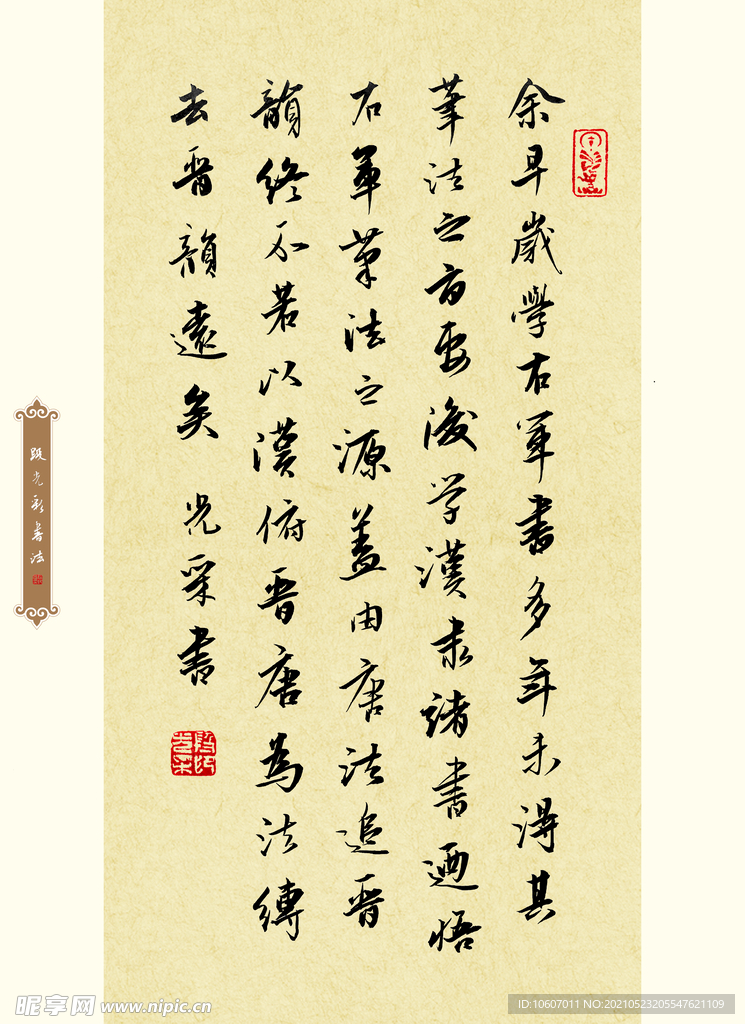 余早歲學右軍書多年未得其
筆法之旨要後学漢隶諸書迺悟
右軍筆法之源蓋由唐法追晋
韻終不若以漢俯晋唐為法縛
去晋韻遠矣 光采書
段光彩書法
昵享网 www.nipic.cn
ID:10607011 NO:20210523205547621109